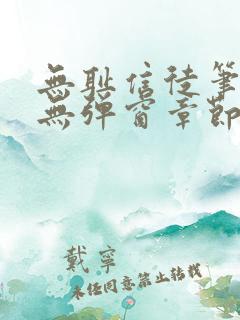 無耻信徒筆
無彈窗章節
戴寧
未经同意禁止转载